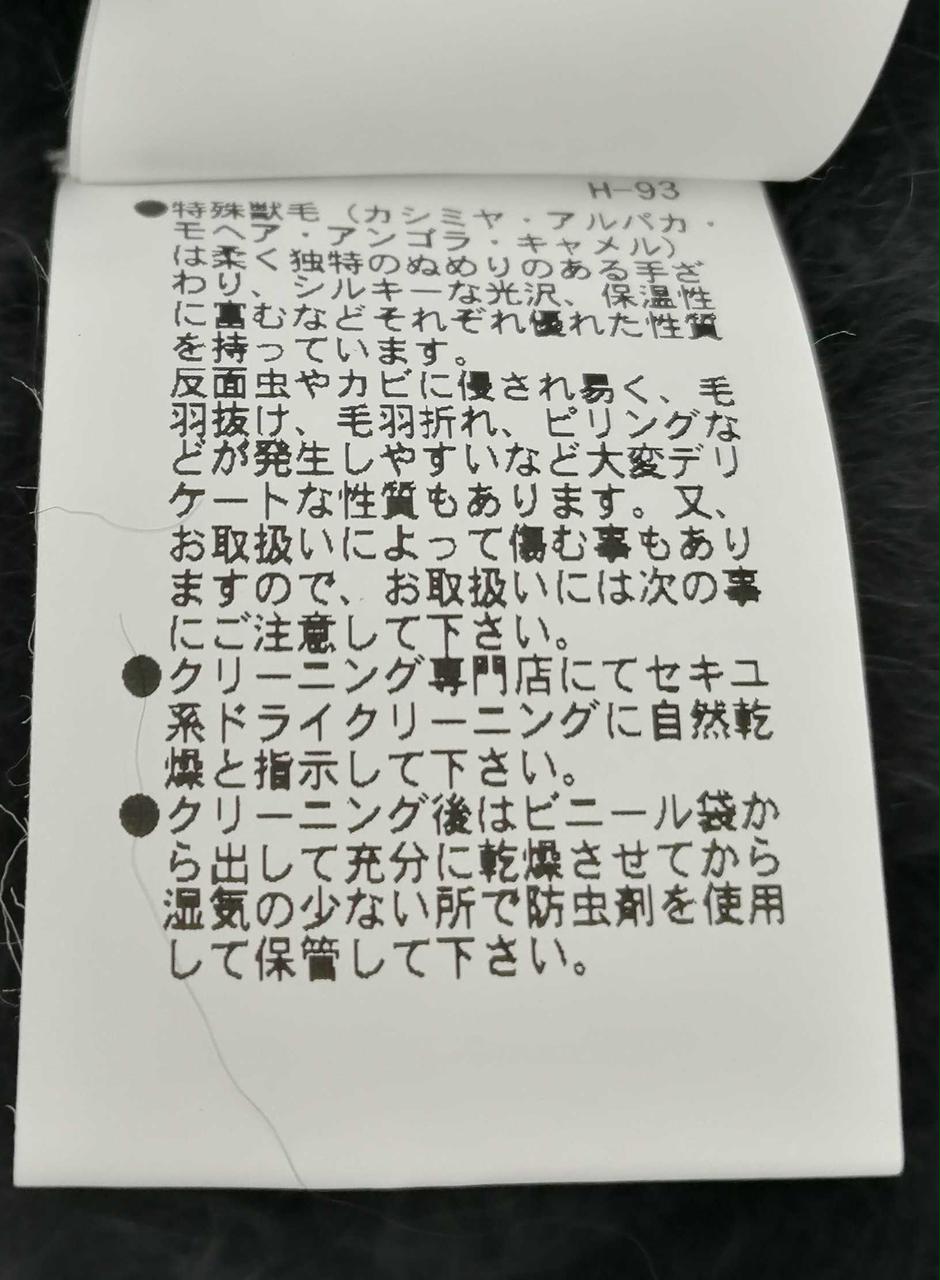 H-93
●特殊獣毛(カシミヤ・アルパカ・
モヘア・アンゴラ・キャメル)
は柔く独特のぬめりのある手ざ
わり、シルキーな光沢、保温性
に富むなどそれぞれ優れた性質
を持っています。
反面虫やカビに侵され易く、毛
羽抜け、毛羽折れ、ピリングな
どが発生しやすいなど大変デリ
ケートな性質もあります。又、
お取扱いによって傷む事もあり
ますので、お取扱いには次の事
にご注意して下さい。
●クリーニング専門店にてセキユ
系ドライクリーニングに自然乾
燥と指示して下さい。
●クリーニング後はビニール袋か
ら出して充分に乾燥させてから
湿気の少ない所で防虫剤を使用
して保管して下さい。